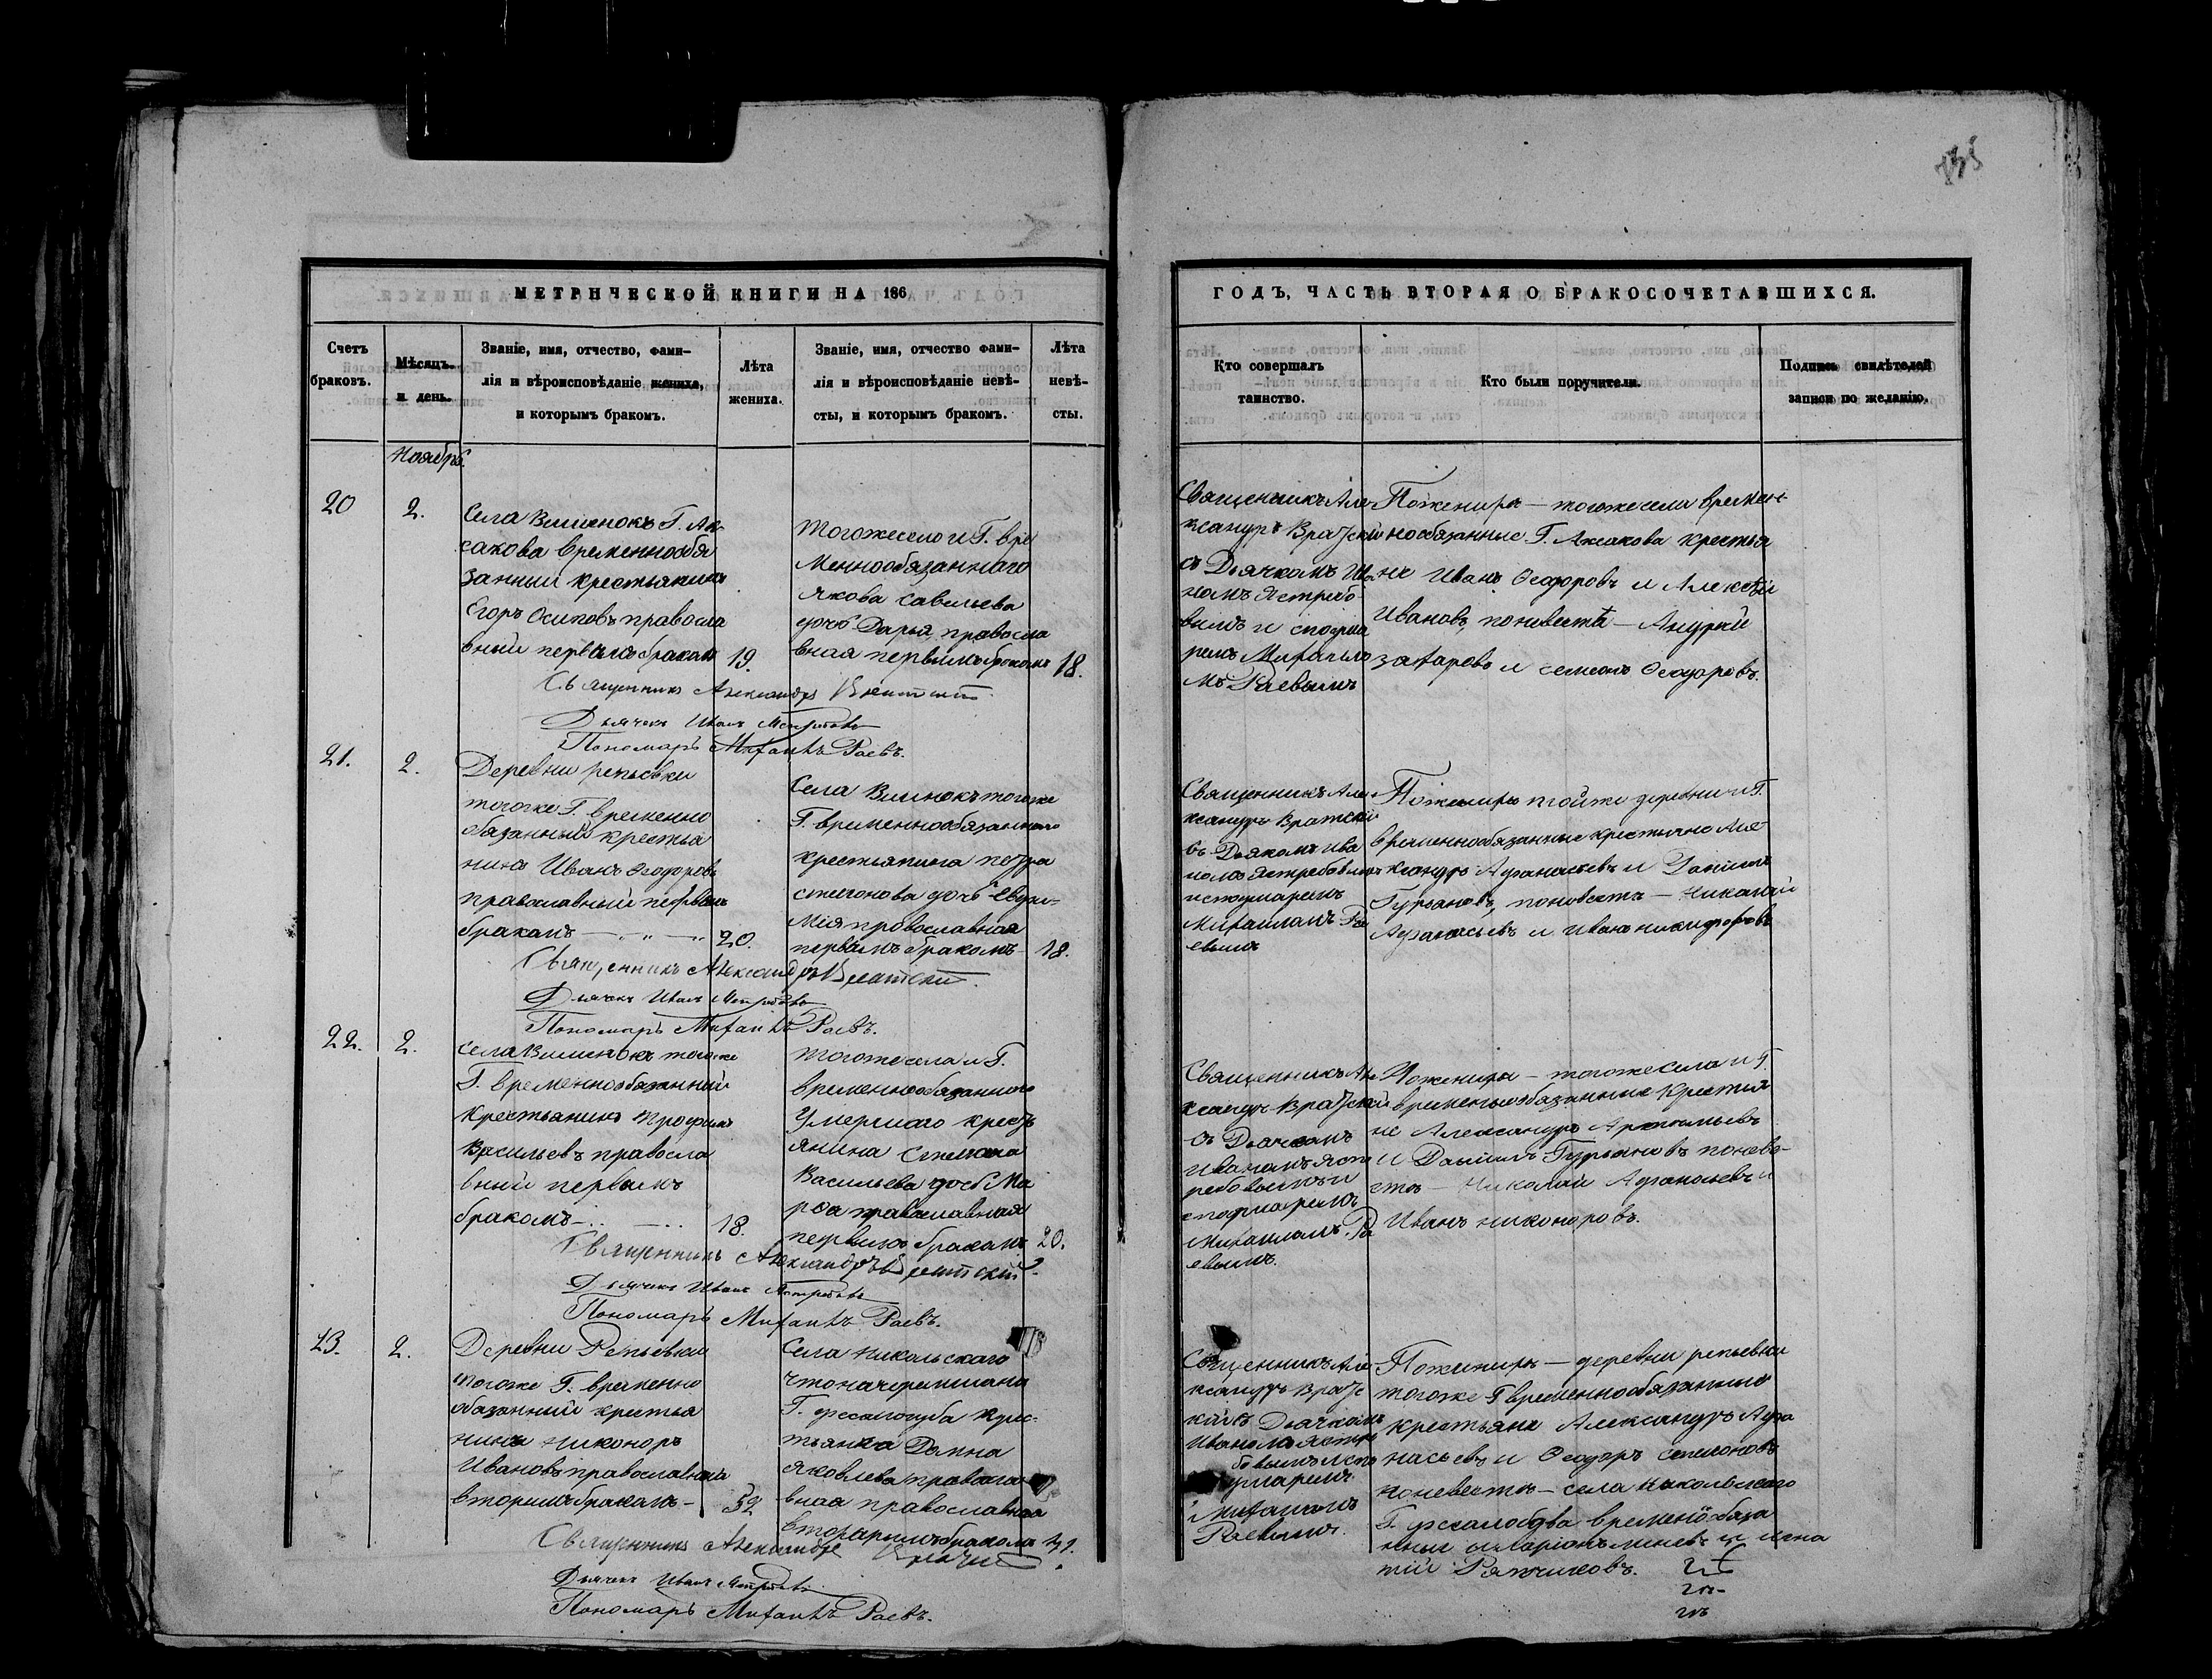 135
МЕТРИЧЕСКОЙ КНИГИ НА 186
ГОДЪ, ЧАСТЬ ВТОРАЯ О БРАКОСОЧЕТАВШИХСЯ.
Счетъ
браковъ.
Мѣсяцъ
и день.
Званіе, имя, отчество, фами-
лія и вѣроисповѣданіе жениха,
и которымъ бракомъ.
Лѣта
жениха.
Званіе, имя, отчество фами-
лія и вѣроисповѣданіе невѣ-
сты, и которымъ бракомъ.
Лѣта
невѣ-
сты.
Кто совершалъ
таинство.
Кто были поручители.
Подпись свидѣтелей
записи по желанію.
Ноябрь.
20
2.
Села Вишенокъ Г. Ак-
сакова временнообя
занный крестьянинъ
Егоръ Осиповъ правосла
вный первымъ бракомъ
19.
Тогоже села и Г. вре
меннообязаннаго
Якова Савельева
дочь Дарья, правосла
вная первымъ бракомъ
18.
Священникъ Але
ксандръ Вратскій
съ Дьячкомъ Ива
номъ Ястребо
вымъ и
Михаило
мъ Раевымъ
По женихѣ — тогоже села времен-
нообязанные Г. Аксакова крестья
не Иванъ Ѳеодоровъ и Алексѣй
Ивановъ, по невѣстѣ — Андрей
Захаровъ и Семенъ Ѳеодоровъ.
Священникъ Александръ
Дьячекъ Иванъ Ястребовъ
Пономарь Михаилъ Раевъ.
21.
2.
Деревни Репьевки
тогоже Г. временно
обязанный крестья
нинъ Иванъ Ѳеодоровъ
православный первымъ
бракомъ
20.
Села Вишенокъ тогоже
Г. временнообязаннаго
крестьянина Петра
Семенова дочь Евфи-
мія православная
первымъ бракомъ
18.
Священникъ Але
ксандръ Вратскій
съ Дьякомъ Ива
номъ Ястребовымъ
Михаиломъ Ра
евымъ
По женихѣ тойже деревни и Г.
временнообязанные крестьяне Але
ксандръ Афанасьевъ и Даніилъ
Гурьяновъ, по невѣстѣ — Николай
Афанасьевъ и Иванъ Никифоровъ
Священникъ Александръ Вратскій.
Дьячекъ Иванъ Ястребовъ
Пономарь Михаилъ Раевъ.
22.
2.
Села Вишенокъ тогоже
Г. временнообязанный
крестьянинъ Трофимъ
Васильевъ правосла
вный первымъ
бракомъ
18.
Тогоже села и Г.
временнообязаннаго
умершаго кресть
янина Семена
Васильева дочь Ма
рѳа православная
первымъ бракомъ
20.
Священникъ Але
ксандръ Вратскій
съ Дьячкомъ
Иваномъ Яст
ребовымъ и
Михаиломъ Ра
евымъ.
По женихѣ — тогоже села и Г.
временнообязанные крестья
не Александръ
и Даніилъ Гурьяновъ по невѣ-
стѣ — Николай Афанасьевъ и
Иванъ Никоноровъ.
Священникъ Александръ Вратскій.
Дьячекъ Иванъ Ястребовъ
Пономарь Михаилъ Раевъ.
23.
2.
Деревни Репьевки
тогоже Г. временно
обязанный крестья
нинъ Никоноръ
Ивановъ православный
вторымъ бракомъ —
Села Никольскаго
Г. крес-
тьянка Домна
Яковлева правосла
вная православная
вторымъ бракомъ
Священникъ Але
ксандръ Вратс
кій съ Дьячкомъ
Иваномъ Ястре
бовымъ
Михаиломъ
Раевымъ.
По женихѣ — деревни Репьевки
тогоже Г временнообязанные
крестьяне Александръ Афа
насьевъ и Ѳеодоръ Семеновъ
по невѣстѣ — села Никольскаго
Г. временнообяза
нные
Священникъ Александръ
Дьячекъ Иванъ Ястребовъ
Пономарь Михаилъ Раевъ.